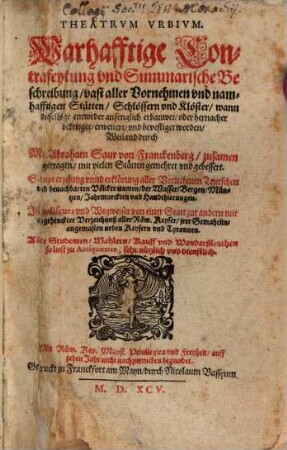 THEATRVM VRBIVM.
Warhafftige Con-
trafeytung vnd Summarische Be-
schreibung / vast aller Vornehmen vnd nam-
hafftigen Stätten / Schlössern vnd Klöster / wann
dieselbige entweder anfenglich erbauwet / oder hernacher
bekrieget / erweitert / vnd bevestiget worden /
Weiland durch
M. Abraham Saur von Franckenberg / zusamen
getragen / mit vielen Stätten gemehret vnd gebessert.
Sampt erzelung vnnd erklärung aller Teutschen
vnd benachbarten Völcker namen / der Wasser / Bergen / Mün-
tzen / Jahrmarckten vnd Handthierungen.
vnd Wegweiser von einer Statt zur andern mit
angehenckter Verzeichnuß aller Röm. Keyser / jrer Gemaheln /
angemaßten neben Keysern vnd Tyrannen.
Allen Studenten / Mahlern / Kauff vnd Wanderßleuthen
so lust zu Antiquiteten / sehr nützlich vnd dienstlich.
Mit Röm. Key. Mayst. Privilegien vnd Freyheit / auff
zehen Jahr nicht nachzutrucken begnadet.
Getruckt zu Franckfort am Mayn / durch Nicolaum Bassæum.
M. D. XCV.